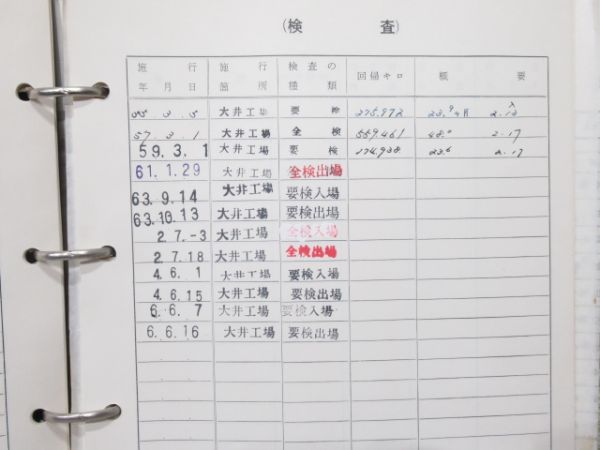 (検 査)
施行年月日 施行箇所 検査の種類 回帰キロ 概要
55. 3. 5 大井工場 要検 275,972 入 2.13
57. 3. 1 大井工場 全検 559,461 2.17
59. 3. 1 大井工場 要検 174,938 2.17
61. 1. 29 大井工場 全検出場
63. 9. 14 大井工場 要検入場
63. 10. 13 大井工場 要検出場
2. 7. -3 大井工場 全検入場
2 7. 18 大井工場 全検出場
4. 6. 1 大井工場 要検入場
4. 6. 15 大井工場 要検出場
6. 6. 7 大井工場 要検入場
6. 6. 16 大井工場 要検出場